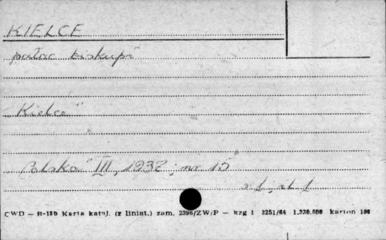 KIELCE
pałac biskupi
"Kielce"
"Polska" III, 1932, nr. 15
s. 1, il. 1
CWD – R-180 Karta katal. (z liniat.) zam. 2396/ZW/P – kzg 1 2251/64 1.220.000 karton 180